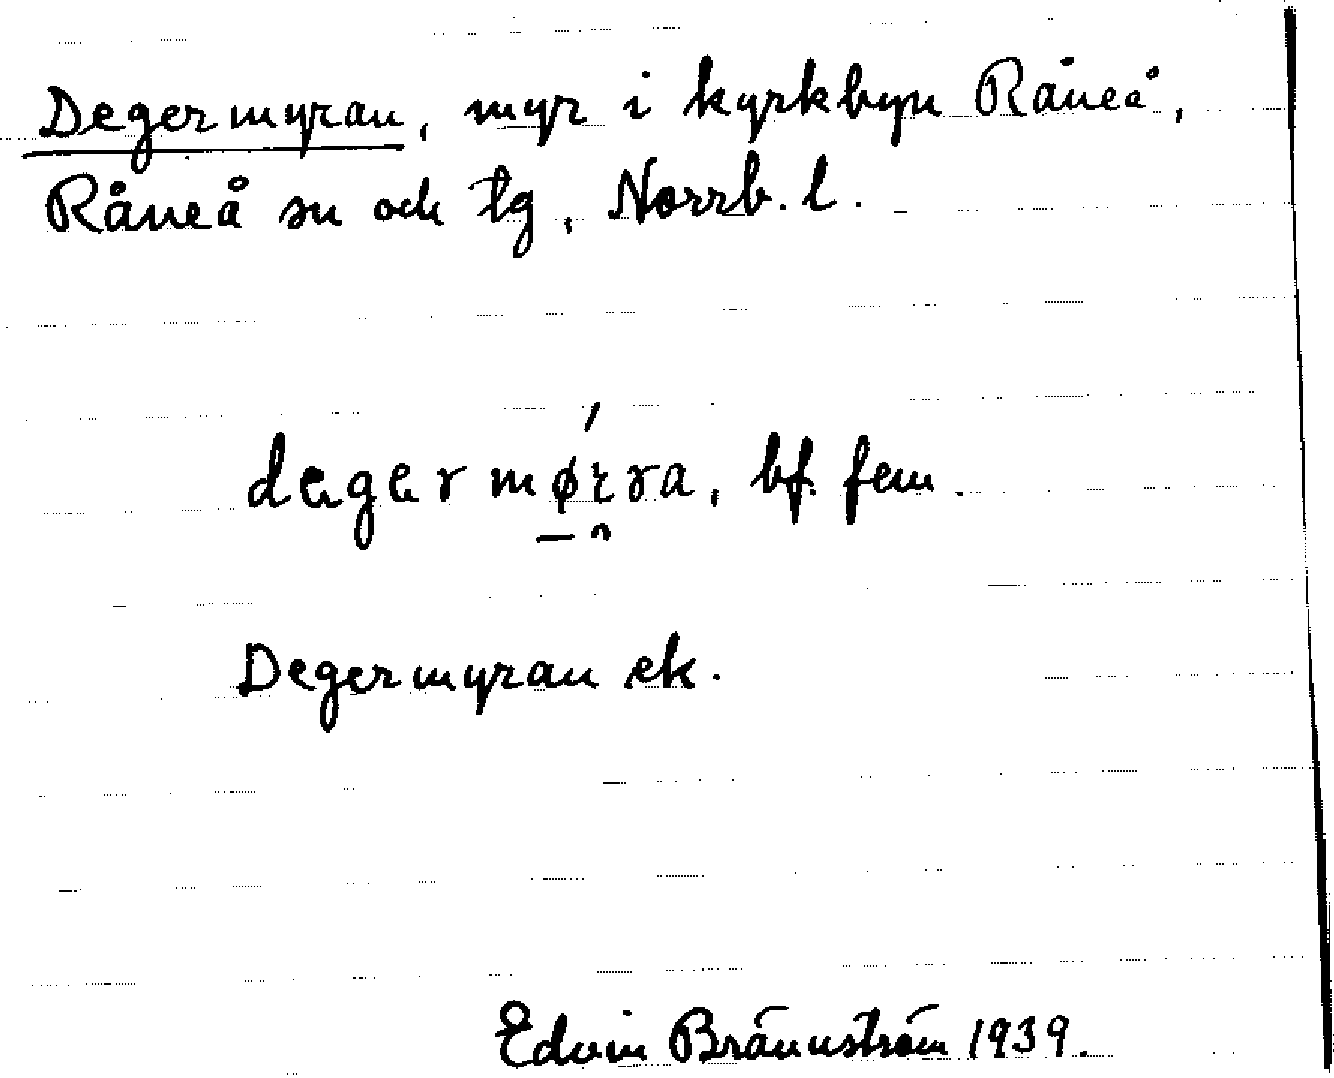 Degermyran, myr i kyrkbyn Råneå,
Råneå sn och tg, Norrb. l.
degermǿrra, bf. fem.
Degermyran ek.
Edvin Brännström 1939.